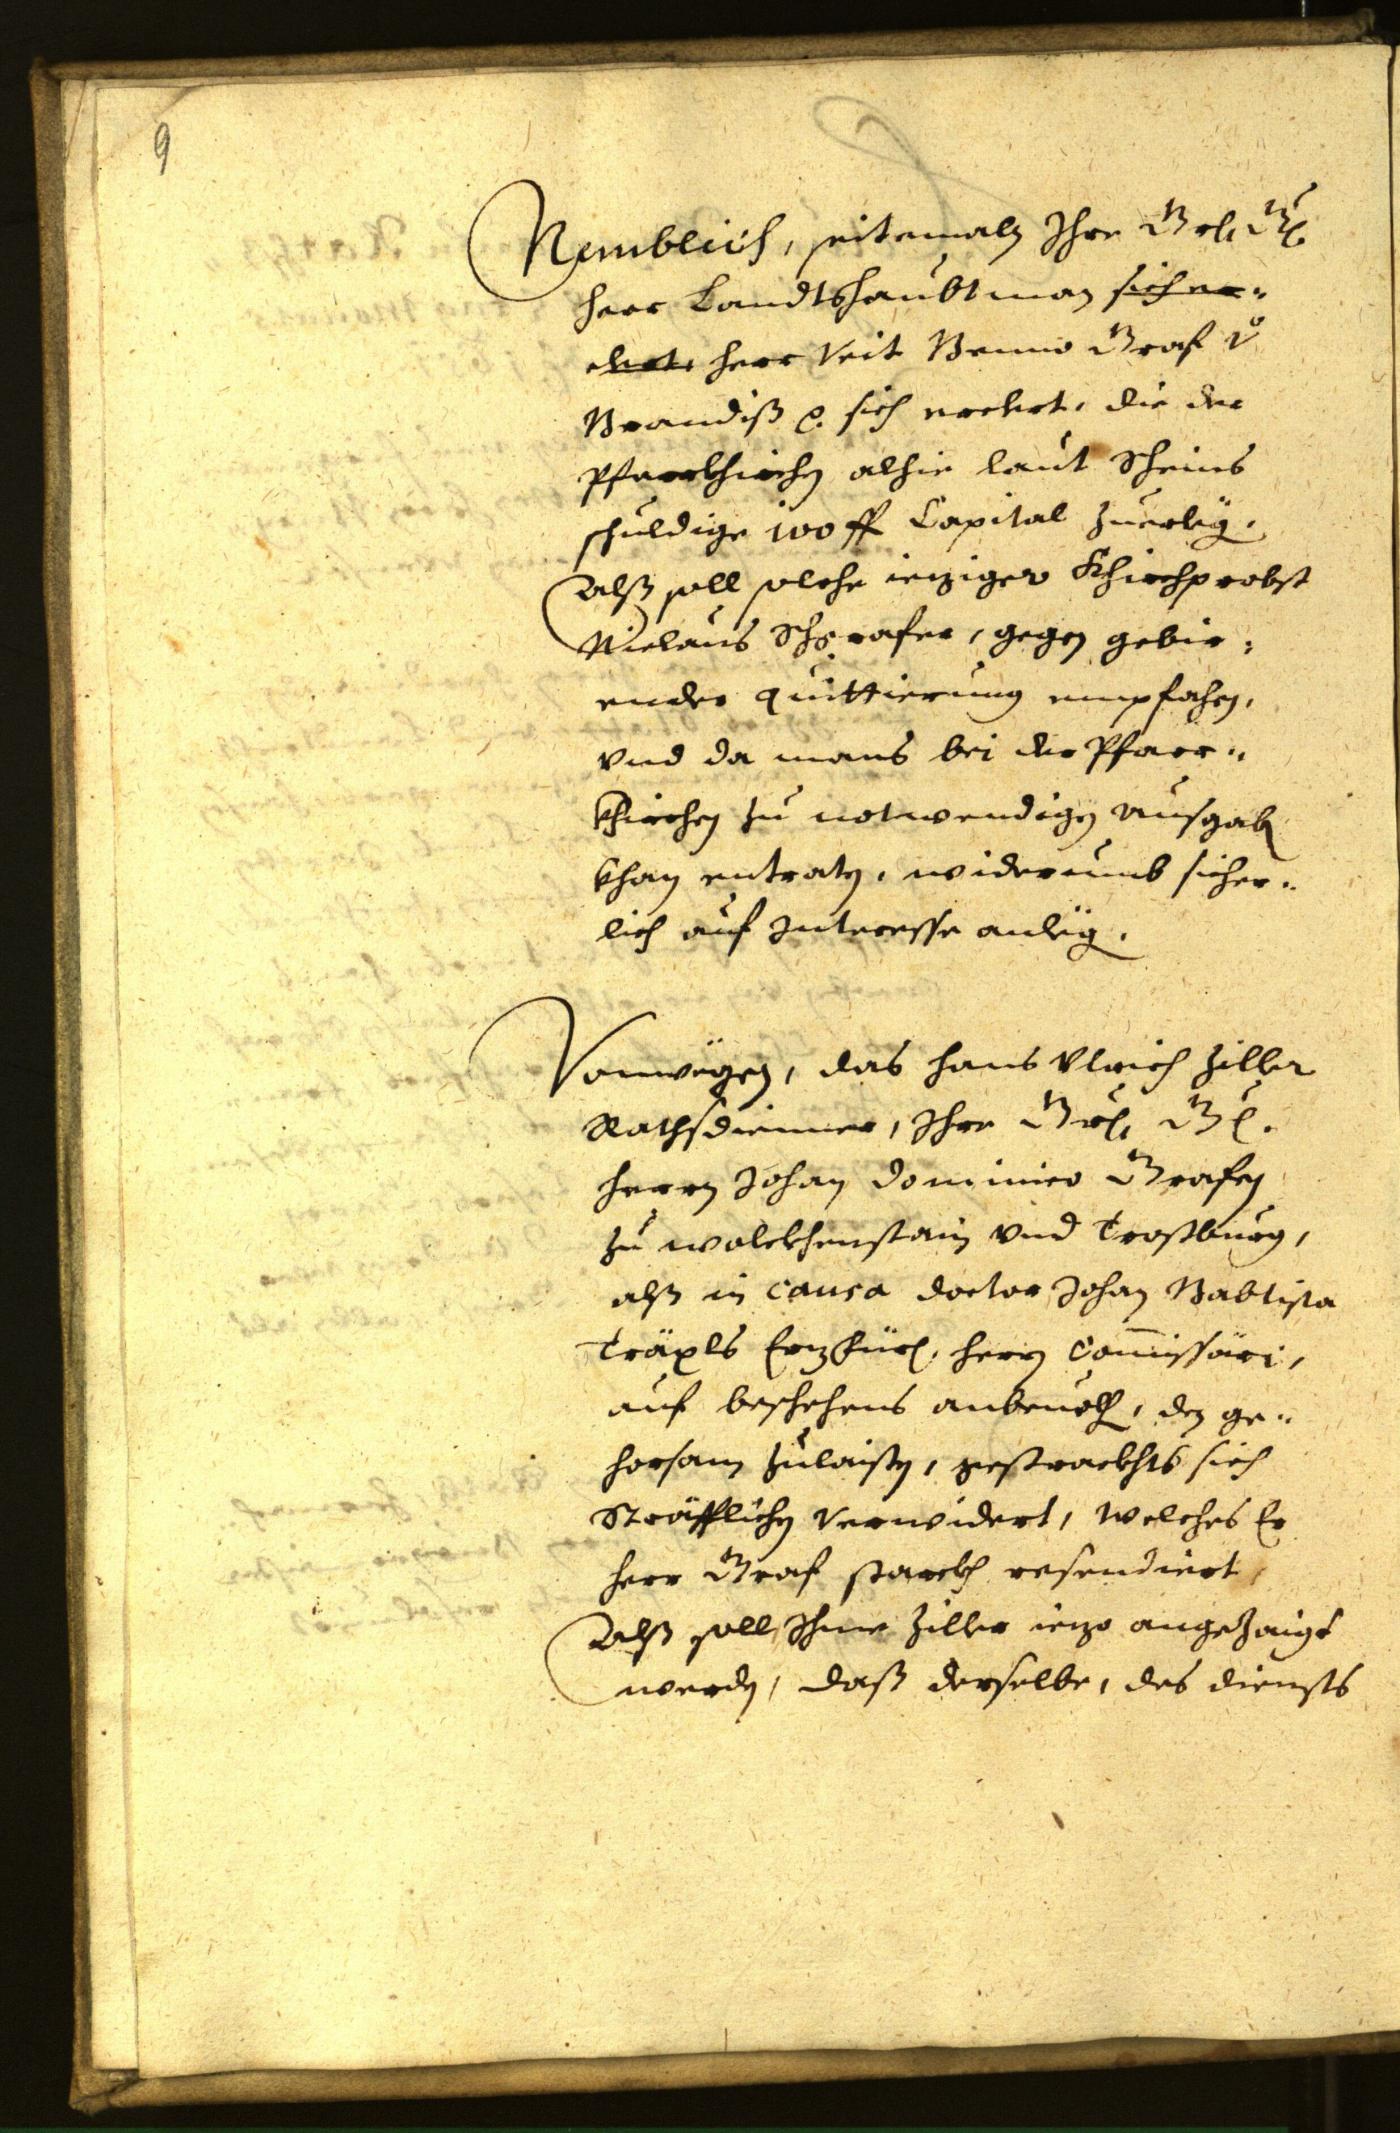 9
Nemblich, seitemaln Ihre Grl. Gl.
herr Landtshaubtman sich er-
clert, herr Veit Benno Graf v
Brandiß p. sich erclert, die der
Pfarrkhirchen alhie laut Scheins
schuldige 100 ff Capital zuerleg,
Alß soll solche ieziger Khirchprobst
Niclaus Schgrafer, gegen gebir-
ender quittierung empfahen,
vnd da mans bei der Pfarr-
khirchen zu notwendigen ausgab
khan entraten, widerumb sicher-
lich auf Interesse anleg.
Vonwegen, das Hans Vlrich Ziller
Rathsdienner, Ihre Grl. Gl.
herrn Johan Dominico Grafen
zu wolckhenstain vnd Trostburg,
alß in causa doctor Johan Babtista
Träxls Erzfürl. herrn Commissäri,
auf beschehens anbeuelh, den ge-
horsam zulaisten, gestrackhts sich
Sträfflichen verwidert, welches Er
herr Graf starckh resendiert,
Alß soll Ihme Ziller iezo angezaigt
werden, daß derselbe, des diensts